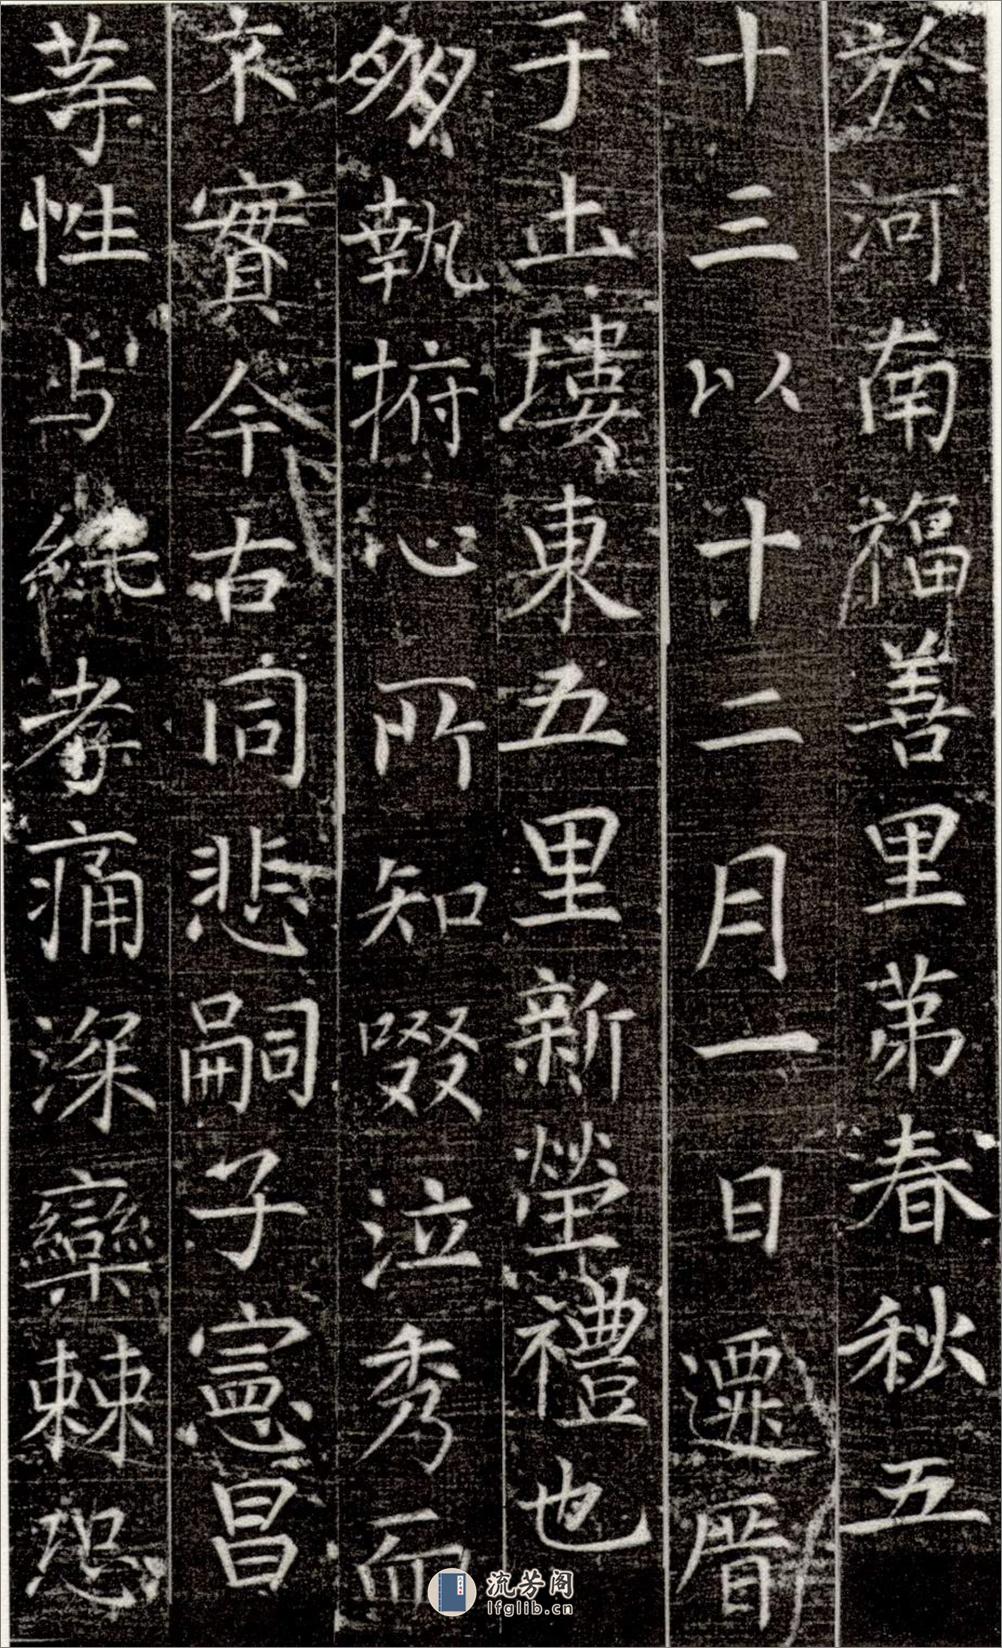 於河南福善里苐春秋五
十三以十二月一日遷厝
于土塿東五里新塋禮也
夘執捬心所知啜泣秀而
不實今古同悲嗣子憲昌
䓁性与純孝痛深欒棘恐
流芳阁
lfglib.cn